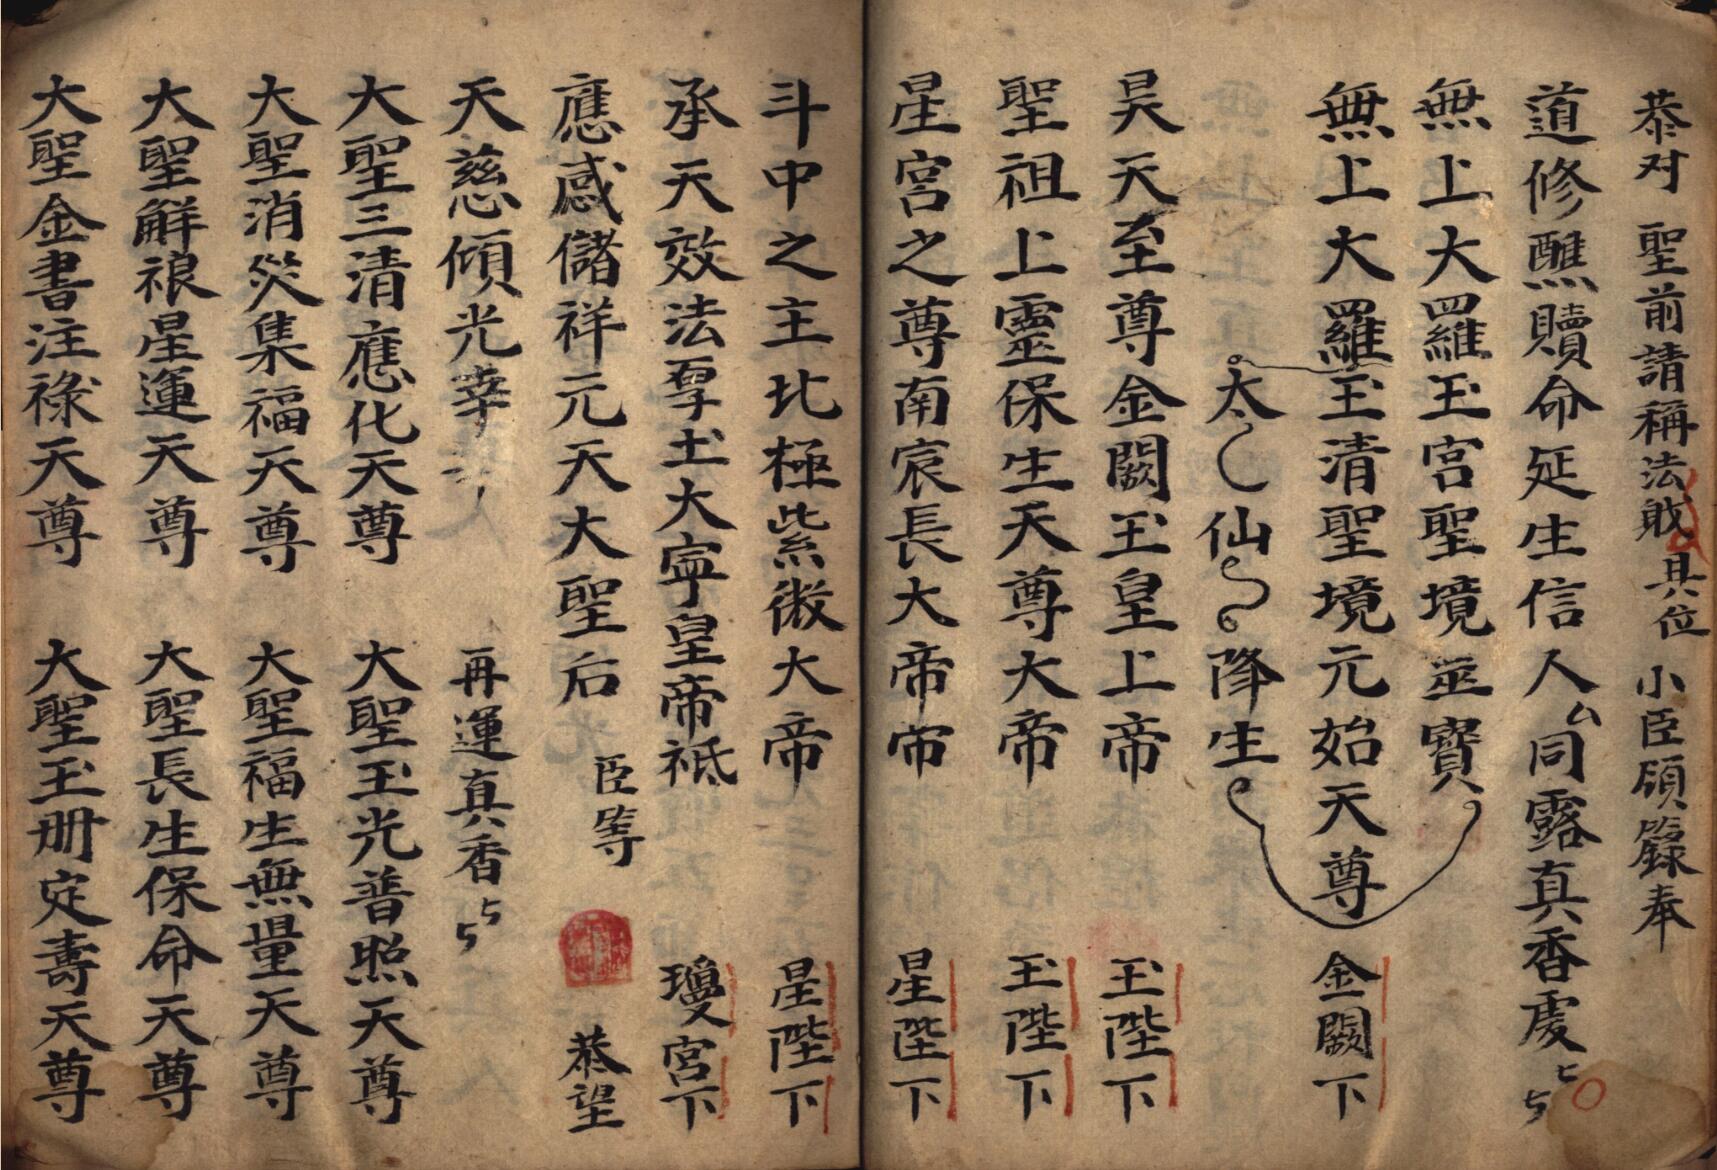 恭对 聖前請稱法戝具位 小臣領籙奉
道修醮贖命延生信人厶同露真香虔
無上大羅玉宮聖境並寶
無上大羅玉清聖境元始天尊 金闕下
太 仙 降生
昊天至尊金闕玉皇上帝 玉陛下
聖祖上靈保生天尊大帝 玉陛下
星宮之尊南宸長大帝帝 星陛下
斗中之主北極紫微大帝 星陛下
承天效法厚土大寜皇帝祗 瓊宮下
應感儲祥元天大聖后 臣等 恭望
天慈傾光 再運真香
大聖三清應化天尊 大聖玉光普照天尊
大聖消災集福天尊 大聖福生無量天尊
大聖解禳星運天尊 大聖長生保命天尊
大聖金書注祿天尊 大聖玉册定壽天尊